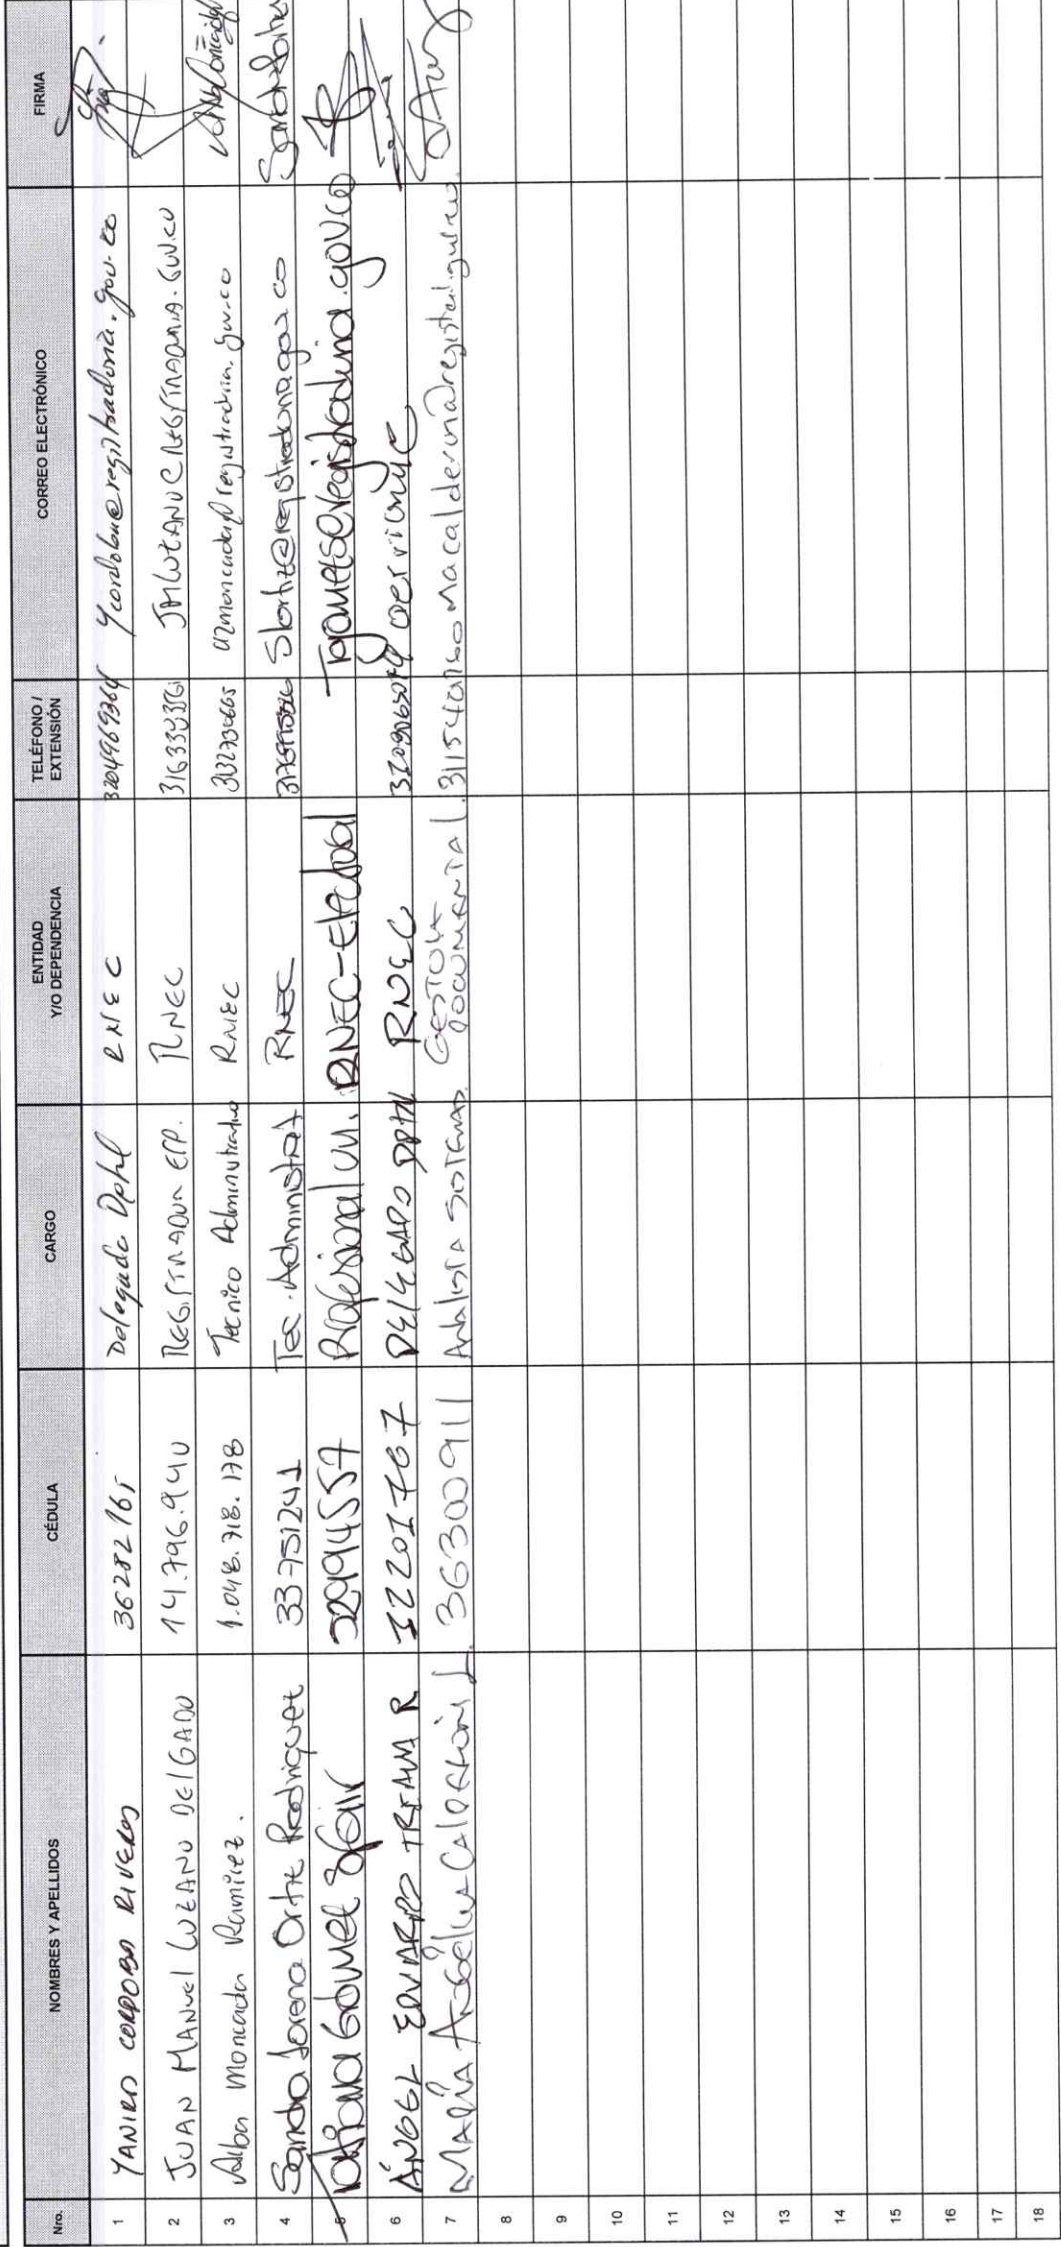 Nro. NOMBRES Y APELLIDOS CÉDULA CARGO ENTIDAD Y/O DEPENDENCIA TELÉFONO / EXTENSIÓN CORREO ELECTRÓNICO FIRMA
1 YANIRA CORDOBA RIVEROS 36282165 Delegada Dptal RNEC 3204969364 ycordoba@registraduria.gov.co
2 JUAN MANUEL LOZANO DELGADO 14.796.940 REGISTRADOR ESP. RNEC JMLOZANO@REGISTRADURIA.GOV.CO
3 Alba Moncada Ramirez. 1.048.718.178 Tecnico Administrativo RNEC azmoncada@registraduria.gov.co
4 Sandra Lorena Ortiz Rodriguez 33751241 Tec. Administrat RNEC Slortiz@registraduria.gov.co
5 Tatiana Gomez 52994557 Profesional Uni. RNEC-Electoral Tgomez@registraduria.gov.co
6 ÁNGEL EDUARDO R 12201767 DELEGADO DPTAL RNEC
7 MARÍA ANGÉLICA CALDERÓN L. 36300911 Analista Sistemas GESTION DOCUMENTAL. 3115401160 macalderon@registraduria.gov.co
8
9
10
11
12
13
14
15
16
17
18